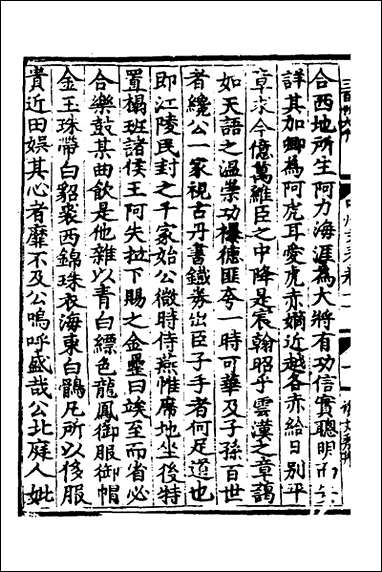 合西地所生阿力海涯為大將有功信實聰明而安
詳其加卿為阿虎耳愛虎赤嫡近越各赤給日別平
章求今億萬維臣之中降是宸翰昭乎雲漢之章藹
如天語之温崇功襮德匪夸一時可華及子孫百世
者纔公一家視古丹書鐵券出臣子手者何足道也
即江陵民封之千家始公微時侍燕惟席地坐後特
置榻班諸侯王阿失拉下賜之金罍曰埃至而省必
合樂鼓某曲飲是他雜以青白縹色龍鳳御服御帽
金玉珠帶白貂裘西錦珠衣海東白鶻凡所以侈服
貴近田娛其心者靡不及公嗚呼盛哉公北庭人妣